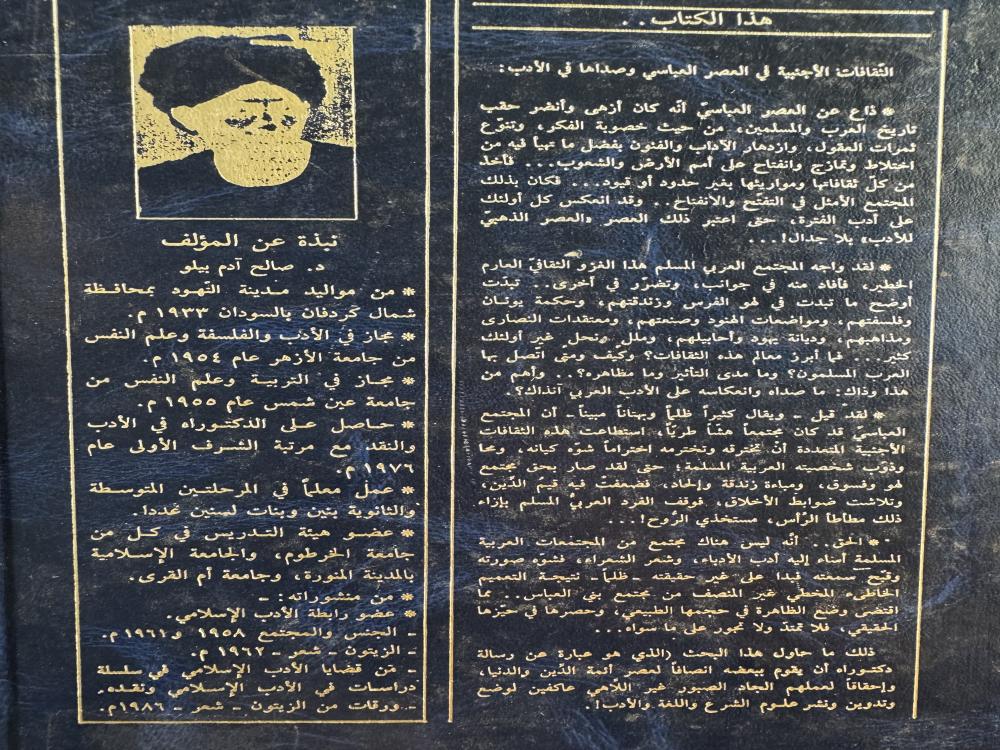 هذا الكتاب . .
الثقافات الأجنبية في العصر العباسي وصداها في الأدب :
* ذاع عن العصر العباسيّ أنّه كان أزهى وأنضر حقب
تاريخ العرب والمسلمين، من حيث خصوبة الفكر، وتنوّع
ثمرات العقول، وازدهار الآداب والفنون بفضل ما تهيأ فيه من
اختلاط وتمازج وانفتاح على أمم الأرض والشعوب... فأخذ
من كلّ ثقافاتها ومواريثها بغير حدود أو قيود... فكان بذلك
المجتمع الأمثل في التفتّح والانفتاح.. وقد انعكس كل أولئك
على أدب الفترة، حتى اعتبر ذلك العصر «العصر الذهبيّ
للأدب» بلا جدال!...
* لقد واجه المجتمع العربي المسلم هذا الغزو الثقافيّ العارم
الخطير، فأفاد منه في جوانب، وتضرّر في أخرى.. تبدّت
أوضح ما تبدت في لهو الفرس وزندقتهم، وحكمة يونان
وفلسفتهم، ومواضعات الهنود وصنعتهم، ومعتقدات النصارى
ومذاهبهم، وديانة يهود وأحابيلهم، وملل ونحل غير أولئك
كثير... فما أبرز معالم هذه الثقافات؟ وكيف ومتى اتّصل بها
العرب المسلمون؟ وما مدى التأثير وما مظاهره؟.. وأهم من
هذا وذاك: ما صداه وانعكاسه على الأدب العربي آنذاك؟.
* لقد قيل - ويقال كثيراً ظلماً وبهتاناً مبيناً - أن المجتمع
العباسيّ قد كان مجتمعاً هشّاً طريّاً، استطاعت هذه الثقافات
الأجنبية المتعددة أنْ تخترقه وتخترمه اختراماً شوّه كيانه، ومحا
وذوّب شخصيته العربية المسلمة؛ حتى لقد صار بحق مجتمع
لهو وفسوق، ومباءة زندقة وإلحاد، فضعفت فيه قيم الدّين،
وتلاشت ضوابط الأخلاق، فوقف الفرد العربيّ المسلم بإزاء
ذلك مطأطأ الرّأس، مستخذي الرّوح!...
* الحق.. أنّه ليس هناك مجتمع من المجتمعات العربية
المسلمة أساء إليه أدب الأدباء، وشعر الشعراء، فشوّه صورته
وقبّح سمعته فبدا على غير حقيقته - ظلماً - نتيجة التعميم
الخاطىء المخطي غير المنصف من مجتمع بني العباس.. مما
اقتضى وضع الظاهرة في حجمها الطبيعي، وحصرها في حيّزها
الحقيقي، فلا تمتدّ ولا تجور على ما سواه...
ذلك ما حاول هذا البحث (الذي هو عبارة عن رسالة
دكتوراه أن يقوم ببعضه انصافاً لعصر أئمة الدّين والدنيا،
وإحقاقاً لعملهم الجاد الصبور غير اللّاهي عاكفين لوضع
وتدوين ونشر علوم الشرع واللغة والأدب!.
نبذة عن المؤلف
د. صالح آدم بيلو
* من مواليد مدينة النّهود بمحافظة
شمال كَردفان بالسودان ١٩٣٣ م.
* مجاز في الأدب والفلسفة وعلم النفس
من جامعة الأزهر عام ١٩٥٤ م.
* مجاز في التربية وعلم النفس من
جامعة عين شمس عام ١٩٥٥ م.
* حاصل على الدكتوراه في الأدب
والنقد مع مرتبة الشرف الأولى عام
١٩٧٦ م.
* عمل معلماً في المرحلتين المتوسطة
والثانوية بنين وبنات لسنين عددا.
* عضو هيئة التدريس في كل من
جامعة الخرطوم، والجامعة الإسلامية
بالمدينة المنورة، وجامعة أم القرى.
* من منشوراته: -
* عضو رابطة الأدب الإسلامي.
- الجنس والمجتمع ١٩٥٨ و١٩٦١م.
- الزيتون - شعر - ١٩٦٢ م.
- من قضايا الأدب الإسلامي في سلسلة
دراسات في الأدب الإسلامي ونقده.
- ورقات من الزيتون - شعر - ١٩٨٦م.